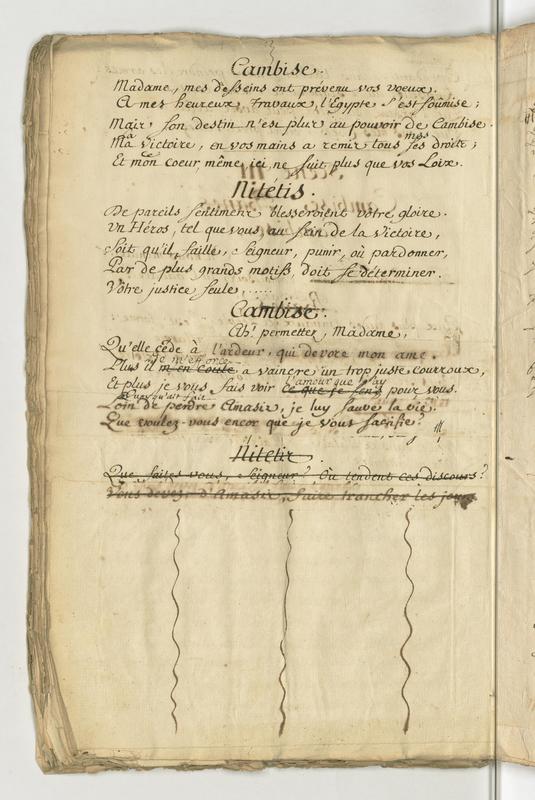 Cambise.
Madame, mes desseins ont prévenu vos voeux.
A mes heureux travaux, l'Egypte s'est soûmise;
Mais son destin n'est plus au pouvoir de Cambise.
sa mes
Ma Victoire, en vos mains a remis tous ses droits;
Ce
Et mon Coeur même, ici, ne suit plus que vos Loix.
Nitétis.
De pareils sentimens blesseroient vôtre gloire.
Un Héros, tel que vous, au sein de la Victoire,
Soit qu'il faille, Seigneur, punir, où pardonner,
Par de plus grands motifs doit se déterminer.
Vôtre justice seule, ......
Cambise.
Ah! permettez, Madame,
Qu'elle cède à l'ardeur, qui devore mon ame.
je m'efforce
Plus il m'en coute, a vaincre un trop juste courroux,
l'amour que j'ay
Et plus je vous fais voir ce que je sens pour vous.
Loin de perdre Amasis, je luy sauve la vie.
Que voulez-vous encor que je vous sacrifie?
Nitetis.
Que faites vous, Seigneur? Où tendent ces discours?
Vous devez d'Amasis, faire trancher les jours